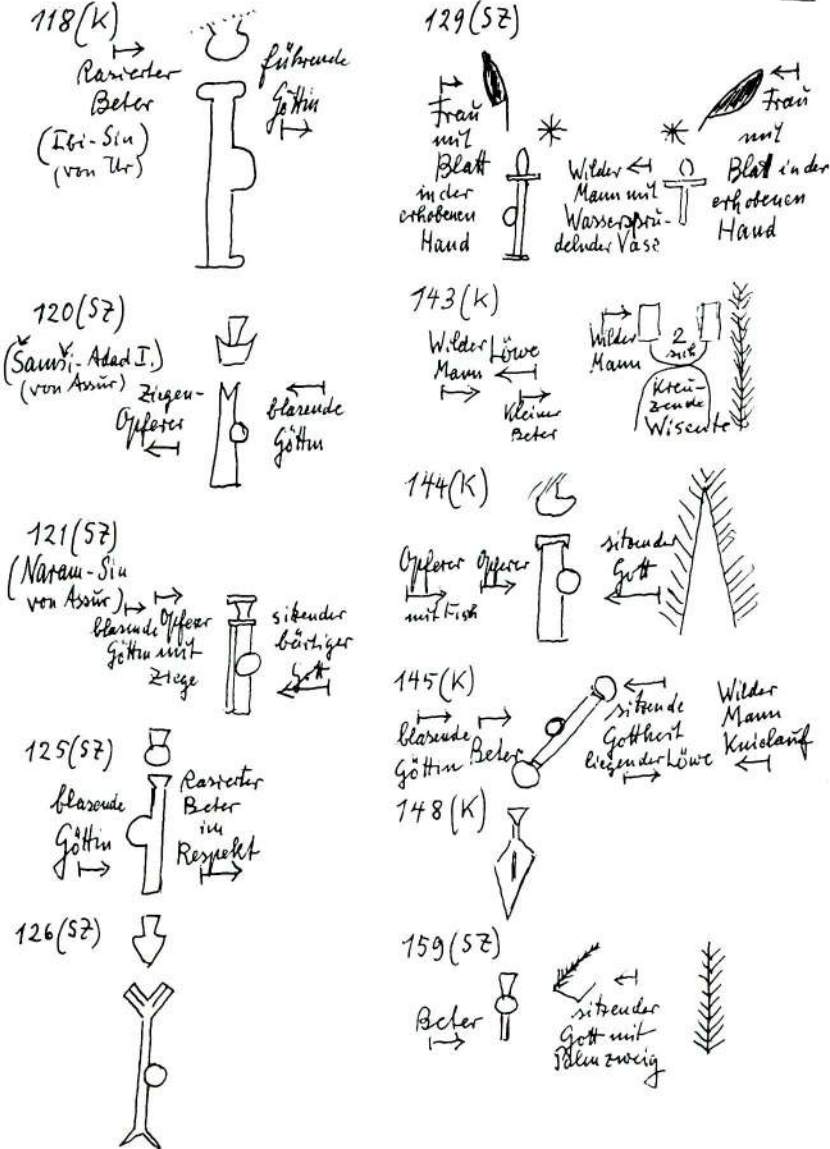 118(K)
Rasierter
Beter
(Ibi-Sin)
(von Ur)
führende
Göttin
120(SZ)
(Šamši-Adad I.)
(von Assur)
Ziegen-
Opferer
blasende
Göttin
121(SZ)
(Naram-Sin
von Assur)
blasende Opferer
Göttin mit
Ziege
sitzender
bärtiger
Gott
125(SZ)
blasende
Göttin
Rasierter
Beter
im
Respekt
126(SZ)
129(SZ)
Frau
mit
Blatt
in der
erhobenen
Hand
Wilder
Mann mit
Wasserspru-
delnder Vase
Frau
mit
Blatt in der
erhobenen
Hand
143(K)
Wilder Löwe
Mann
Kleiner
Beter
Wilder
Mann
2
sich
Kreu-
zende
Wisente
144(K)
Opferer Opferer
mit Fisch
sitzender
Gott
145(K)
blasende
Göttin Beter
sitzende
Gottheit
liegender Löwe
Wilder
Mann
Knielauf
148(K)
159(SZ)
Beter
sitzender
Gott mit
Palmzweig